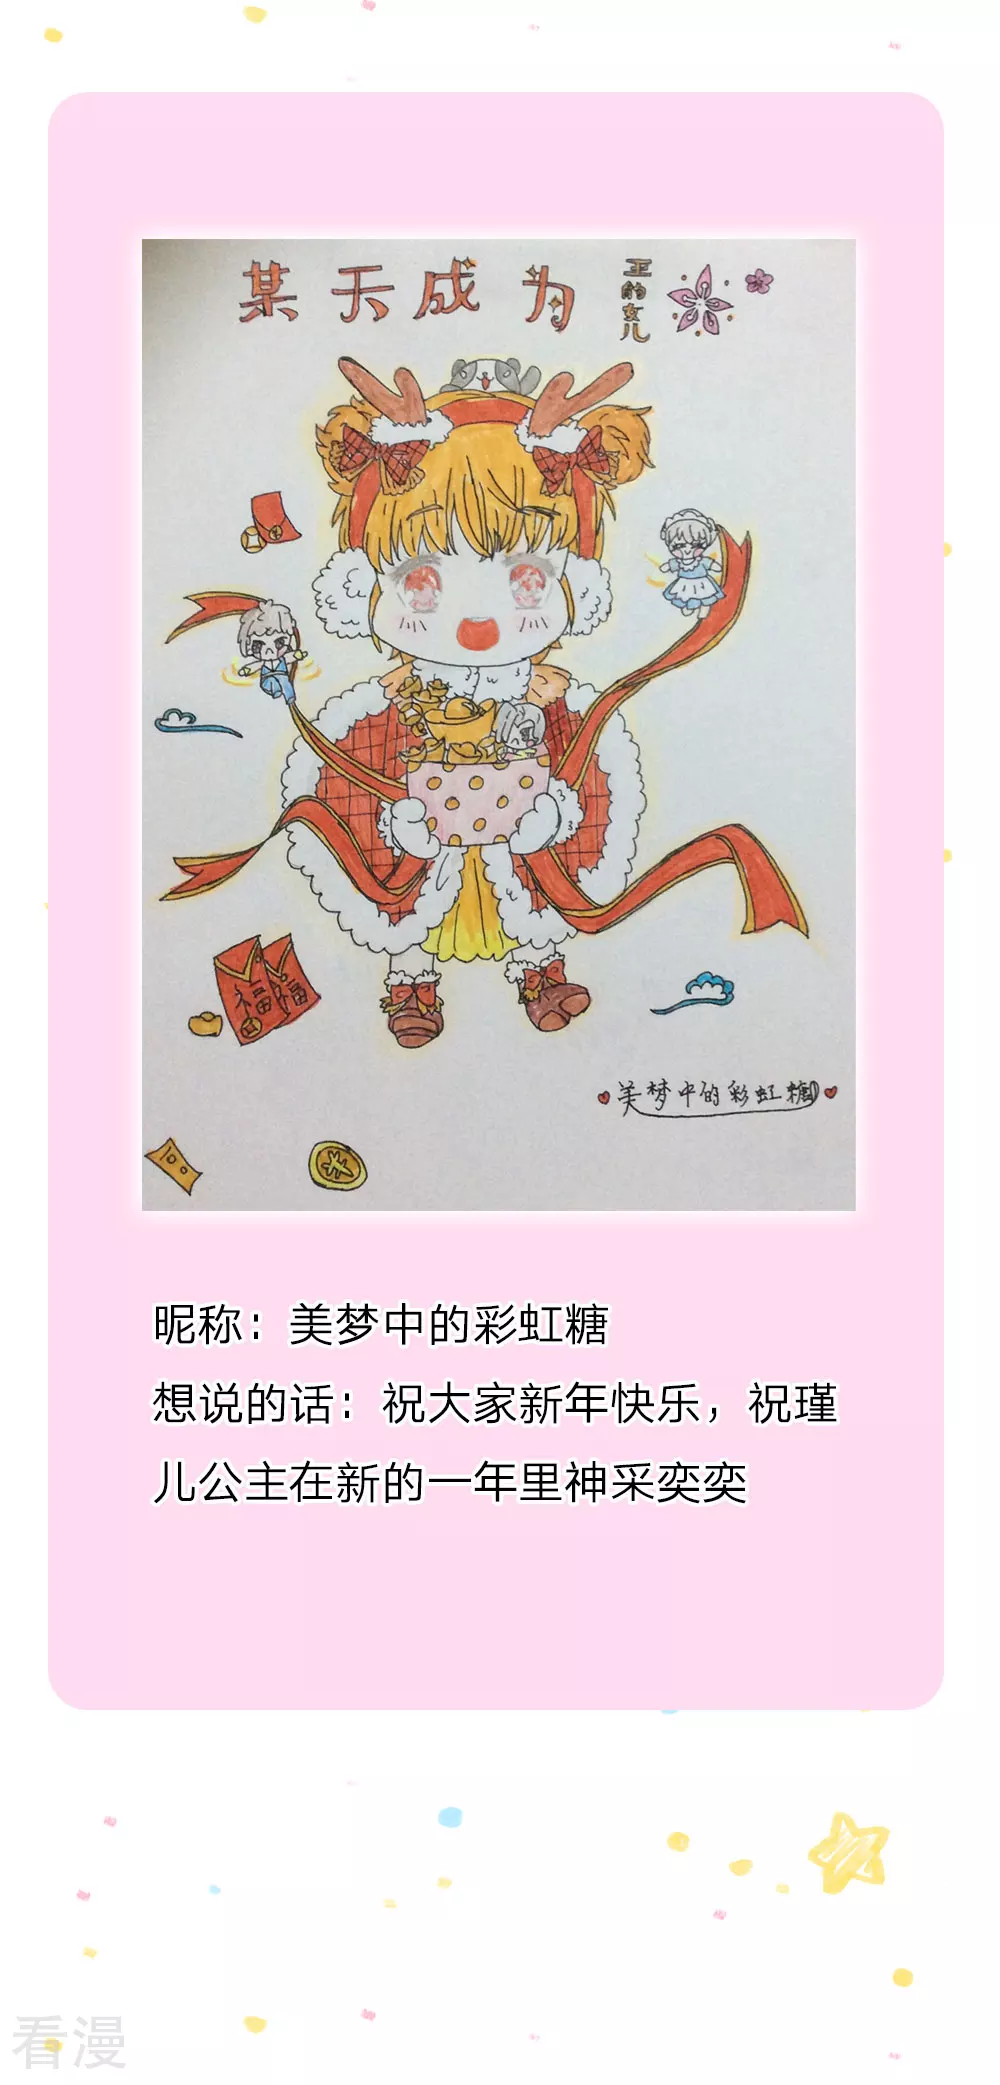 某天成为
王的女儿
福
福
美梦中的彩虹糖
100
昵称：美梦中的彩虹糖
想说的话：祝大家新年快乐，祝瑾
儿公主在新的一年里神采奕奕
看漫